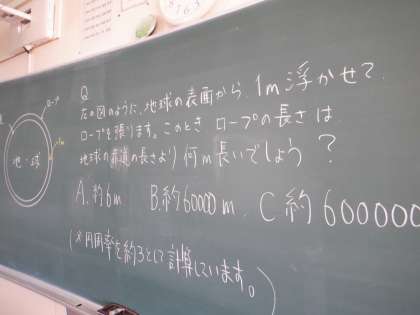 Q
左の図のように、地球の表面から、1m浮かせて、
ロープを張ります。このとき ロープの長さは、
地球の赤道の長さより 何m長いでしょう?
A.約6m B.約60000m. C約600000
(※円周率を約3として計算しています。)
ロープ
1m
地球